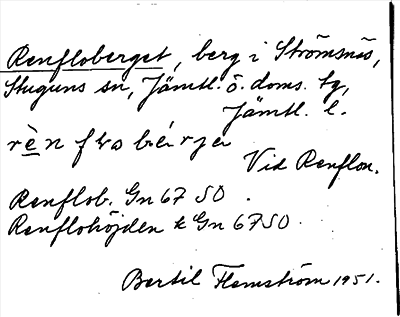 Renfloberget, berg i Strömsnäs,
Stuguns sn, Jämtl. ö. doms. tg,
Jämtl. l.
rèn flo bérje
Vid Renflon.
Renflob. Gn 67 SO.
Renflohöjden k Gn 67 SO.
Bertil Flemström 1951.